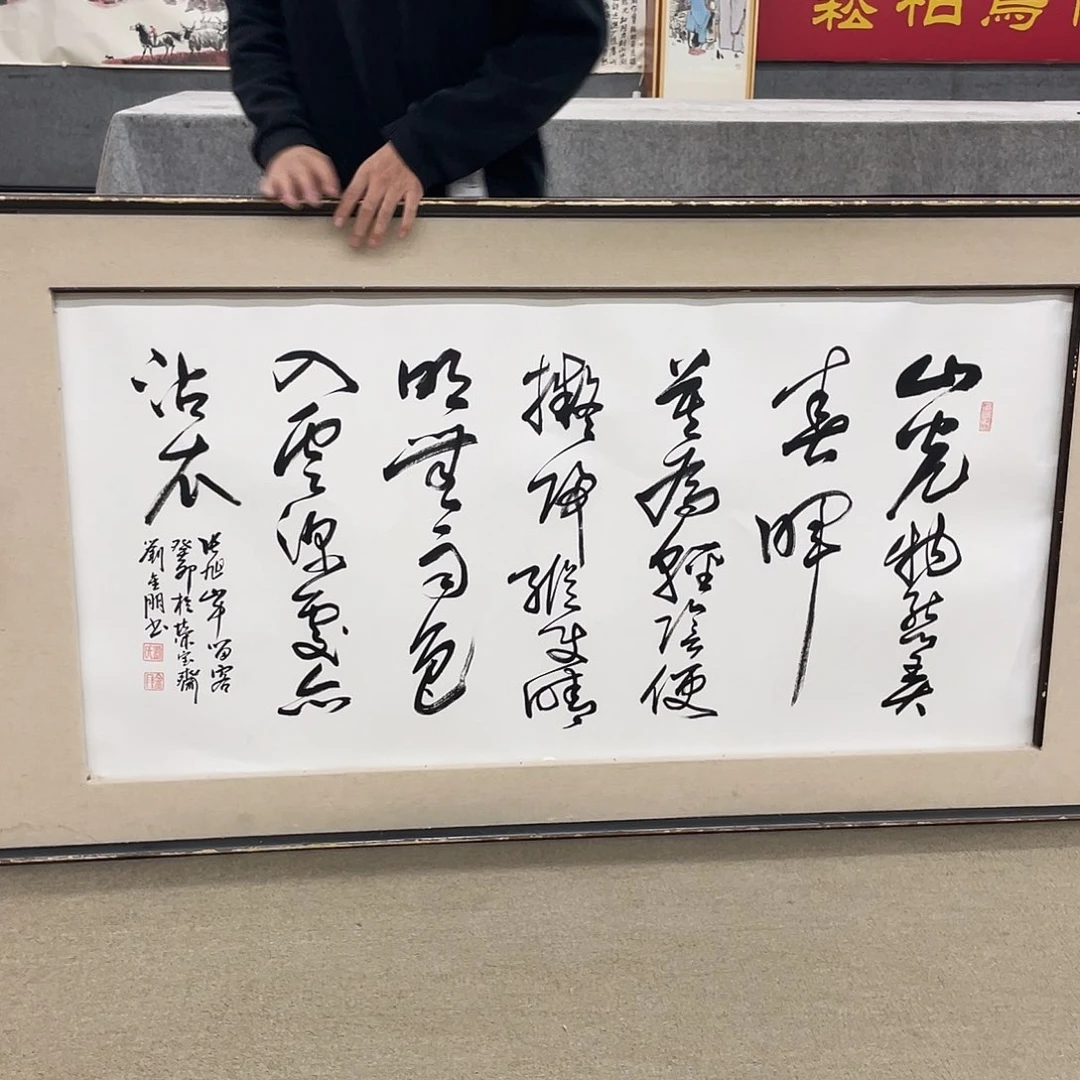 山光物態弄
春暉
莫為輕陰便
擬歸縱使晴
明無雨色
入雲深處亦
沾衣
張旭山中留客
癸卯於榮宝齋
劉金朋書